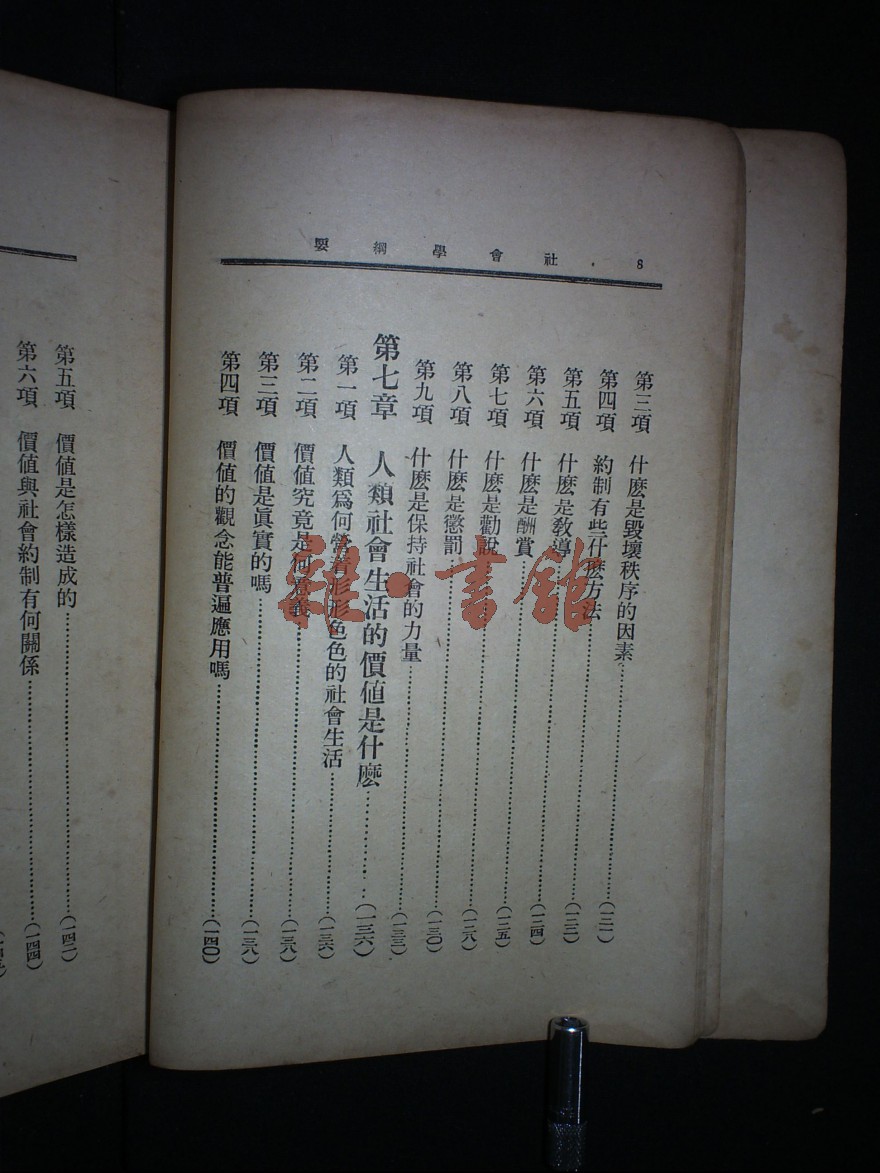 8 社會學綱要
第三項 什麽是毀壞秩序的因素……(一二一)
第四項 約制有些什麽方法……(一二二)
第五項 什麽是敎導……(一二四)
第六項 什麽是酬賞……(一二五)
第七項 什麽是勸說……(一二八)
第八項 什麽是懲罰……(一三〇)
第九項 什麽是保持社會的力量……(一三三)
第七章 人類社會生活的價值是什麽……(一三六)
第一項 人類爲何營着形形色色的社會生活……(一三六)
第二項 價值究竟是何意義……(一三八)
第三項 價值是眞實的嗎……(一三八)
第四項 價值的觀念能普遍應用嗎……(一四〇)
第五項 價值是怎樣造成的……(一四二)
第六項 價值與社會約制有何關係……(一四四)
雜·書館